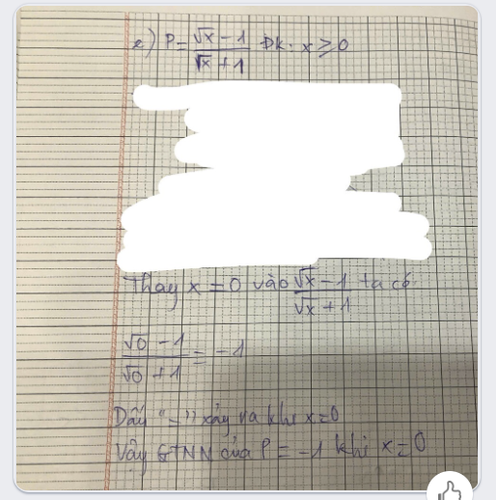 e) P = (√x - 1)/(√x + 1) ĐK: x ≥ 0
Thay x = 0 vào (√x - 1)/(√x + 1) ta có
(√0 - 1)/(√0 + 1) = -1
Dấu "=" xảy ra khi x=0
Vậy GTNN của P = -1 khi x=0